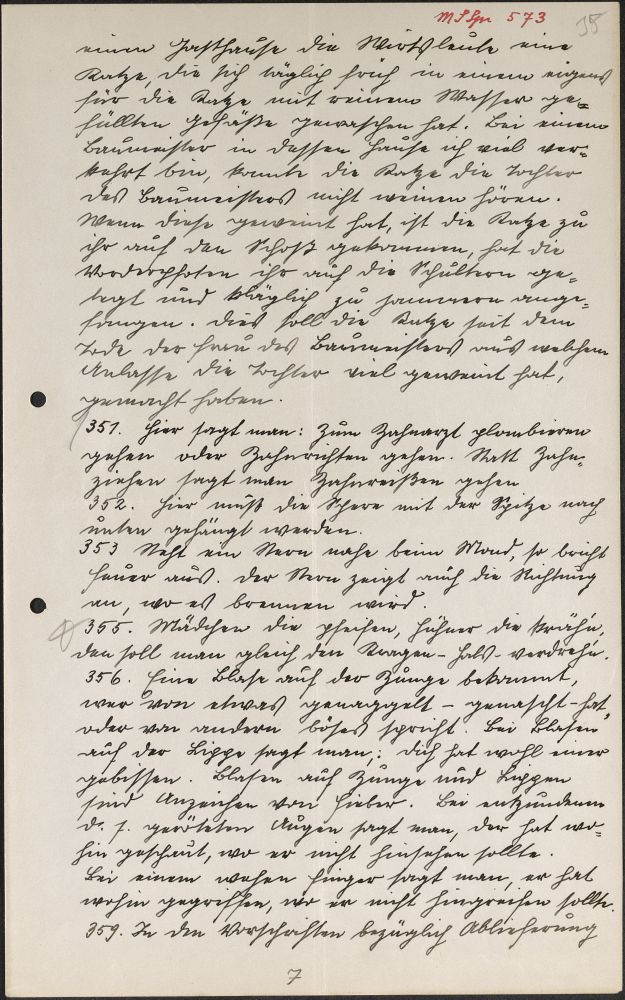 MSgn 573
35
einem Gasthause die Wirtsleute eine
Katze, die sich täglich früh in einem eigens
für die Katze mit reinem Wasser ge=
füllten Gefäße gewaschen hat. Bei einem
Baumeister in dessen Hause ich viel ver=
kehrt bin, konnte die Katze die Tochter
des Baumeisters nicht weinen hören.
Wenn diese geweint hat, ist die Katze zu
ihr auf den Schoß gekommen, hat die
Vorderpfoten ihr auf die Schultern ge=
legt und kläglich zu jammern ange=
fangen. Dies soll die Katze seit dem
Tode der Frau des Baumeisters aus welchem
Anlasse die Tochter viel geweint hat,
gemacht haben.
351. Hier sagt man: Zum Zahnarzt plombieren
gehen oder Zahnrichten gehen. Statt Zahn=
ziehen sagt man Zahnreißen gehen
352. Hier muß die Schere mit der Spitze nach
unten gehängt werden.
353 Steht ein Stern nahe beim Mond, so bricht
Feuer aus. Der Stern zeigt auch die Richtung
an, wo es brennen wird.
355. Mädchen die pfeifen, Hühner die krähn,
den soll man gleich den Kragen-Hals-verdrehn.
356. Eine Blase auf der Zunge bekommt,
wer von etwas genaggelt - genascht-hat,
oder von andern böses spricht. Bei Blasen
auf der Lippe sagt man: dich hat wohl einer
gebissen. Blasen auf Zunge und Lippen
sind Anzeichen von Fieber. Bei entzundenen
d. s. geröteten Augen sagt man, der hat wo=
hin geschaut, wo er nicht hinsehen sollte.
Bei einem wehen Finger sagt man, er hat
wohin gegriffen, wo er nicht hingreifen sollte.
359. In den Vorschriften bezüglich Ablieferung
7